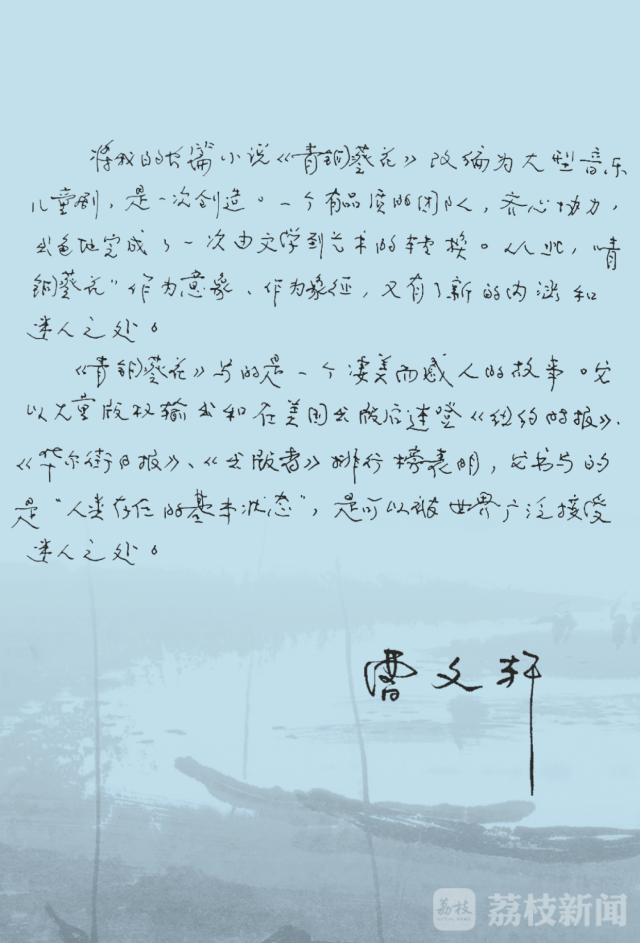 将我的长篇小说《青铜葵花》改编为大型音乐
儿童剧，是一次创造。一个有品质的团队，齐心协力，
出色地完成了一次由文学到艺术的转换。从此，"青
铜葵花"作为意象、作为象征，又有了新的内涵和
迷人之处。
《青铜葵花》写的是一个凄美而感人的故事。它
以大量版权输出和在美国出版后连登《纽约时报》、
《华尔街日报》、《出版者》排行榜表明，它书写的
是"人类存在的基本状态"，是可以被世界广泛接受
迷人之处。
曹文轩
荔枝
荔枝新闻